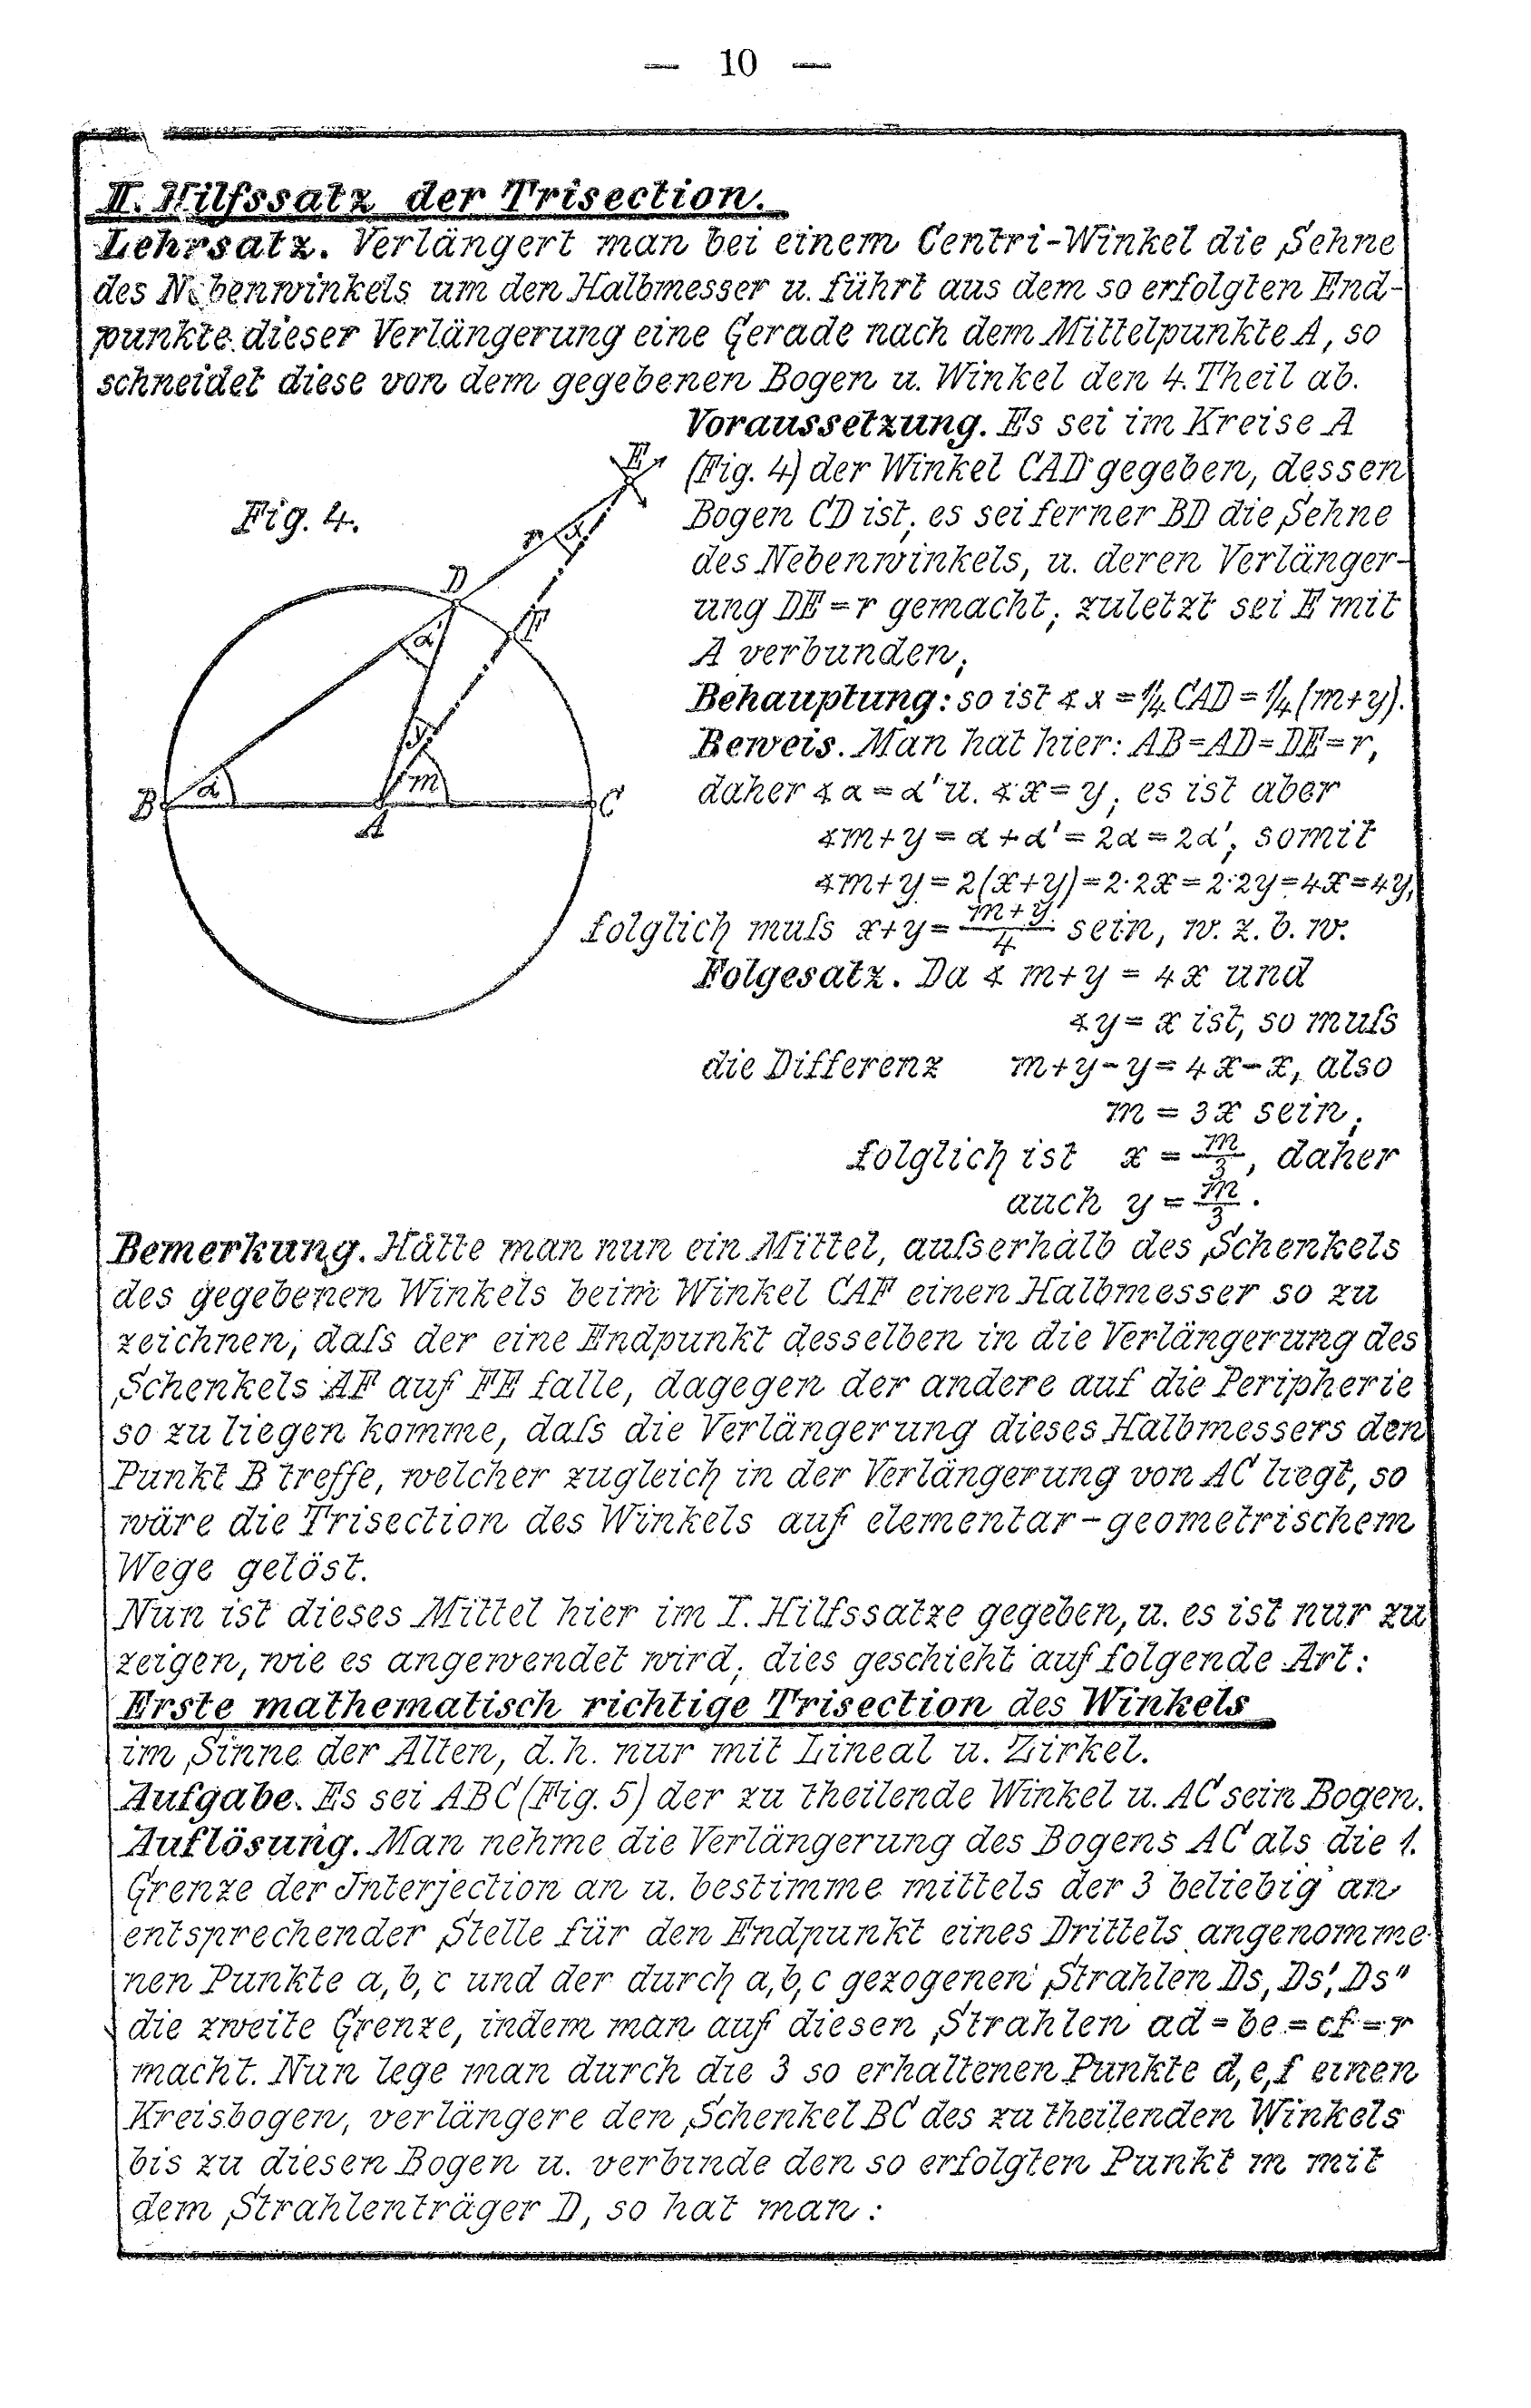 — 10 —
II. Hilfssatz der Trisection.
Lehrsatz. Verlängert man bei einem Centri-Winkel die Sehne
des Nebenwinkels um den Halbmesser u. führt aus dem so erfolgten End-
punkte dieser Verlängerung eine Gerade nach dem Mittelpunkte A, so
schneidet diese von dem gegebenen Bogen u. Winkel den 4. Theil ab.
Voraussetzung. Es sei im Kreise A
(Fig. 4) der Winkel CAD gegeben, dessen
Bogen CD ist; es sei ferner BD die Sehne
des Nebenwinkels, u. deren Verlänger-
ung DE = r gemacht; zuletzt sei E mit
A verbunden;
Behauptung: so ist ∢ x = 1/4 CAD = 1/4 (m+y).
Beweis. Man hat hier: AB = AD = DE = r,
daher ∢ α = α' u. ∢ x = y; es ist aber
∢ m + y = α + α' = 2α = 2α'; somit
∢ m + y = 2(x+y) = 2·2x = 2·2y = 4x = 4y,
folglich muſs x+y = m+y/4 sein, w. z. b. w.
Folgesatz. Da ∢ m+y = 4x und
∢ y = x ist, so muſs
die Differenz m+y−y = 4x−x, also
m = 3x sein;
folglich ist x = m/3, daher
auch y = m/3.
Fig. 4.
E
r
x
D
F
α'
y
α
m
B
A
C
Bemerkung. Hätte man nun ein Mittel, auſserhalb des Schenkels
des gegebenen Winkels beim Winkel CAF einen Halbmesser so zu
zeichnen, daſs der eine Endpunkt desselben in die Verlängerung des
Schenkels AF auf FE falle, dagegen der andere auf die Peripherie
so zu liegen komme, daſs die Verlängerung dieses Halbmessers den
Punkt B treffe, welcher zugleich in der Verlängerung von AC liegt, so
wäre die Trisection des Winkels auf elementar-geometrischem
Wege gelöst.
Nun ist dieses Mittel hier im I. Hilfssatze gegeben, u. es ist nur zu
zeigen, wie es angewendet wird; dies geschieht auf folgende Art:
Erste mathematisch richtige Trisection des Winkels
im Sinne der Alten, d. h. nur mit Lineal u. Zirkel.
Aufgabe. Es sei ABC (Fig. 5) der zu theilende Winkel u. AC sein Bogen.
Auflösung. Man nehme die Verlängerung des Bogens AC als die 1.
Grenze der Interjection an u. bestimme mittels der 3 beliebig an
entsprechender Stelle für den Endpunkt eines Drittels angenomme-
nen Punkte a, b, c und der durch a, b, c gezogenen Strahlen Ds, Ds', Ds"
die zweite Grenze, indem man auf diesen Strahlen ad = be = cf = r
macht. Nun lege man durch die 3 so erhaltenen Punkte d, e, f einen
Kreisbogen, verlängere den Schenkel BC des zu theilenden Winkels
bis zu diesen Bogen u. verbinde den so erfolgten Punkt m mit
dem Strahlenträger D, so hat man: